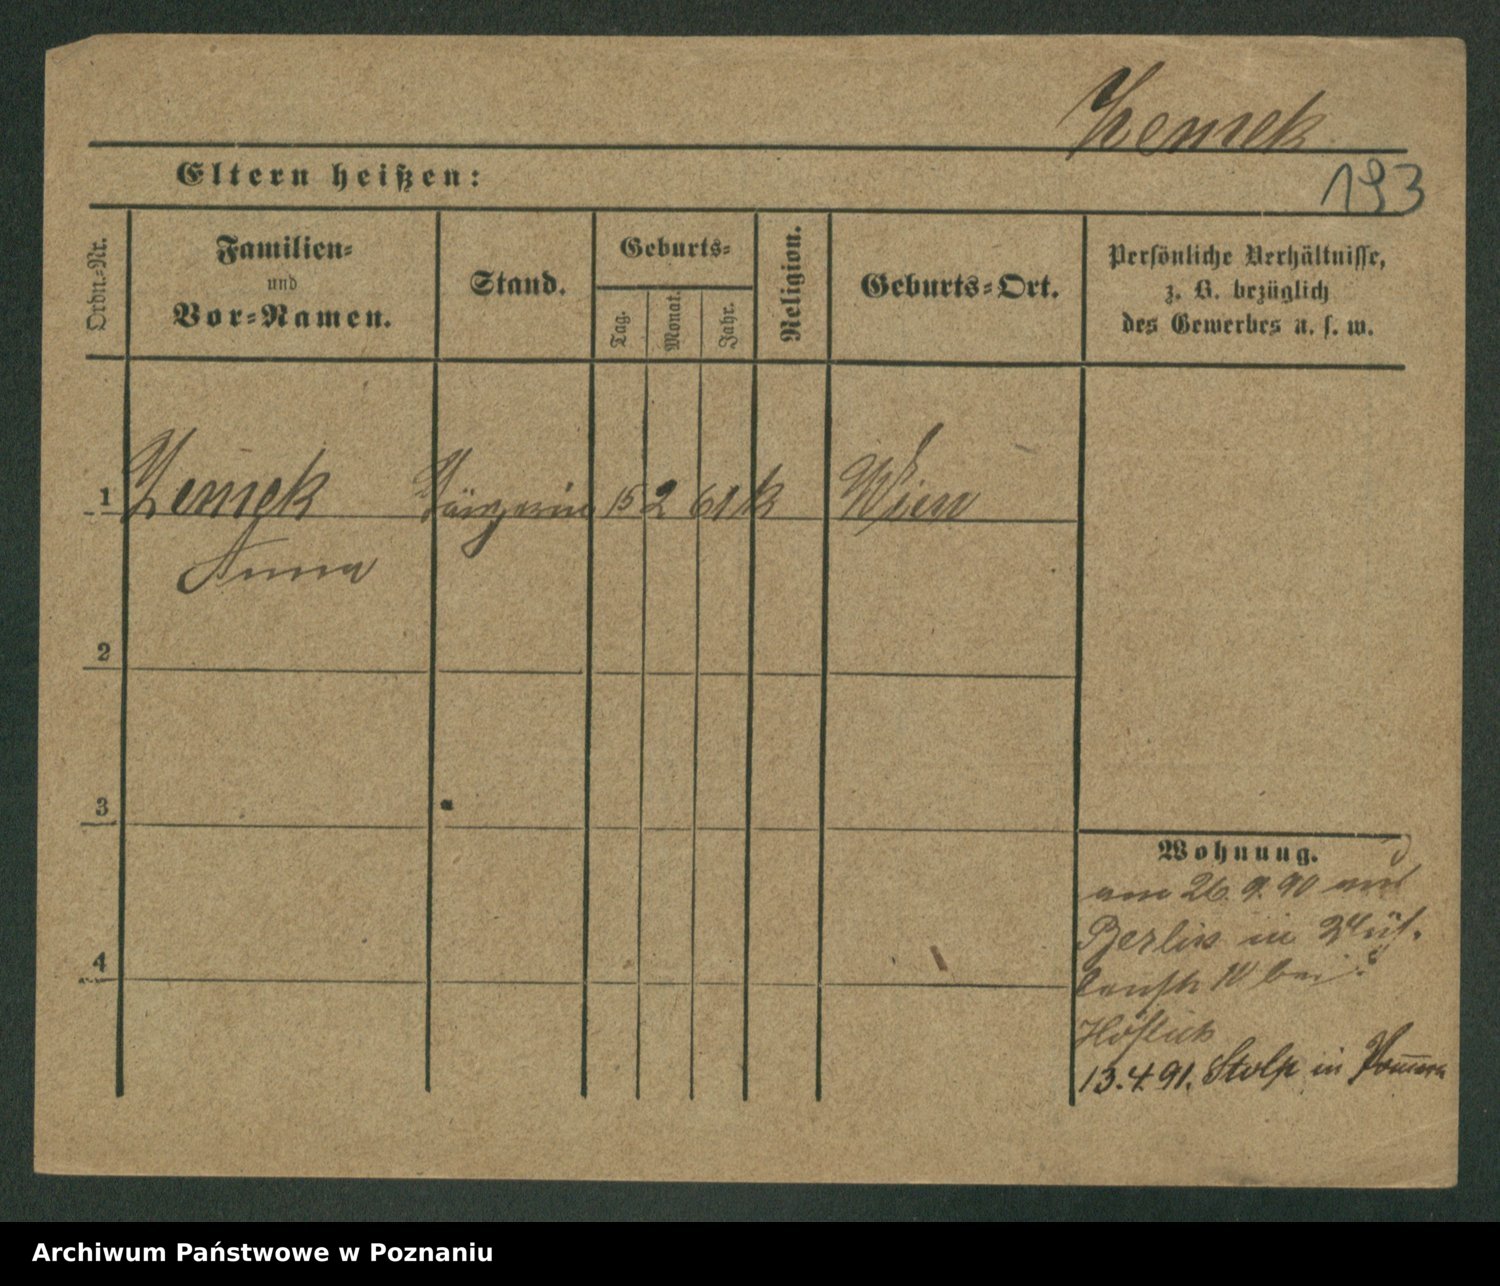 Zemek
193
Eltern heißen:
Ordn.-Nr.
Familien-
und
Vor-Namen.
Stand.
Geburts-
Tag.
Monat.
Jahr.
Religion.
Geburts-Ort.
Persönliche Verhältnisse,
z. B. bezüglich
des Gewerbes u. s. w.
1 Zemek Sängerin 15 2 61 k Wien
Anna
2
3
4
Wohnung.
am 26. 9. 90 aus
Berlin in
bei
13. 4. 91. Stolp in Pommern
Archiwum Państwowe w Poznaniu